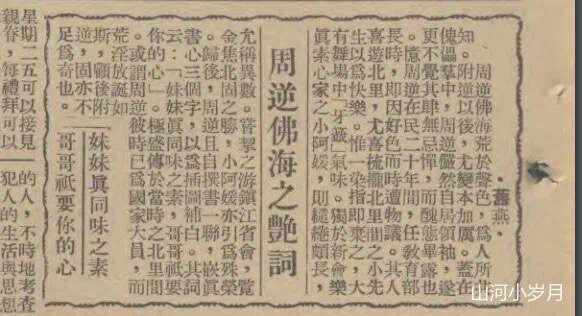 ·舊燕·
周逆佛海荒於聲色，爲人所共
知。附逆以後，尤變本加厲。蓋在
傀儡羣中，周逆儼然自居領袖，遂
更不覺其肆無忌憚，而醜態畢露也
。憶周逆在民二十年間，任教育部
長時，即因好色而時遭物議。其人
喜遊北里，尤喜梳攏北里間之小先
生以爲快樂。惟一染指即棄之，大
有舞場中「牙籤」氣味。獨於新會樂
眞素心家之小阿媛，則繾綣頗長，
周逆佛海之艷詞
尤稱異數。嘗挈之游鎭江省會，覽
金焦北固之勝，小阿媛亦引爲殊榮
。歸後，周逆且自撰書一聯，嵌眞
素心三個字，以爲插圖補白。其詞
云：「妹妹眞同味之素，哥哥祇要
你的心」。極盛傳於當時之北里間
。或謂周逆彼時已爲國家大員，而
荒淫放誕如
斯，顧後附
逆，固亦不
足爲奇也。
妹妹眞同味之素
哥哥祇要你的心
星期二五可以接見
親眷，每禮拜可以
的人，不時地考查
犯人的生活與思想
山河小岁月